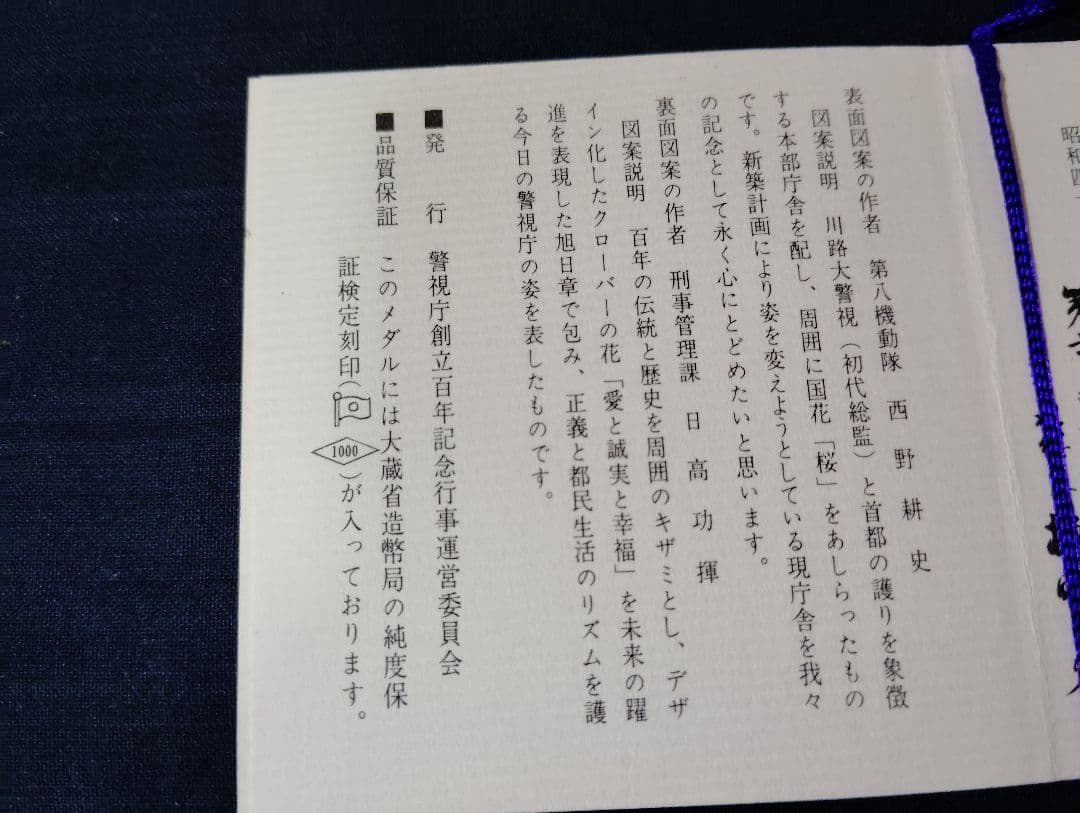 昭和四
表面図案の作者　第八機動隊　西野耕史
図案説明　川路大警視（初代総監）と首都の護りを象徴
する本部庁舎を配し、周囲に国花「桜」をあしらったもの
です。新築計画により姿を変えようとしている現庁舎を我々
の記念として永く心にとどめたいと思います。
裏面図案の作者　刑事管理課　日高功揮
図案説明　百年の伝統と歴史を周囲のキザミとし、デザ
イン化したクローバーの花「愛と誠実と幸福」を未来の躍
進を表現した旭日章で包み、正義と都民生活のリズムを護
る今日の警視庁の姿を表したものです。
■発　行　警視庁創立百年記念行事運営委員会
■品質保証　このメダルには大蔵省造幣局の純度保
証検定刻印（1000）が入っております。